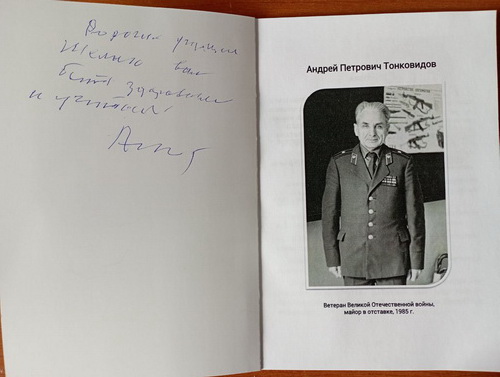 Дорогие учащиеся
Желаю вам
быть здоровыми
и
Андрей Петрович Тонковидов
Ветеран Великой Отечественной войны,
майор в отставке, 1985 г.